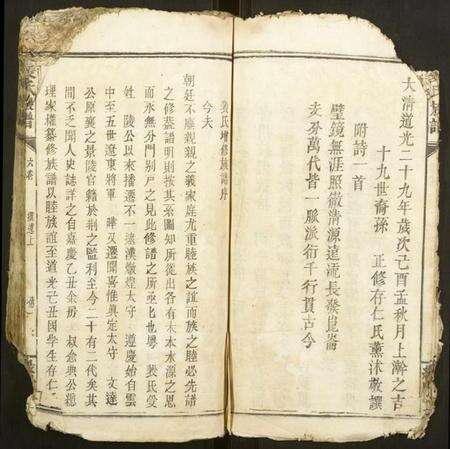 大清道光二十九年歲次己酉孟秋月上澣之吉
十九世裔孫 正修存仁氏薰沐敬譔
附詩一首
璧鏡無涯照徹清源遠流長發崑崙
支分萬代皆一脈派衍千行貫古今
裴氏增修族譜序
今夫
朝廷不廢親親之義家庭尤重睦族之誼而族之睦必先譜
之修蓋譜明則按其系圖知所從出各有木本水源之思
而永無分門別戶之見此修譜之所亟也粵 裴氏受
姓 陵公以來播遷不一遠漢燉煌太守 遵慶始自雲
中至五世遼東將軍 曄又遷聞喜惟與定太守 文達
公原襄之景陵官籍於荆之監利至今二十有二代矣其
間不乏聞人史誌詳之自嘉慶乙丑余房 叔念典公總
理家權纂修族譜以睦族誼至道光己丑因學生存仁
族譜